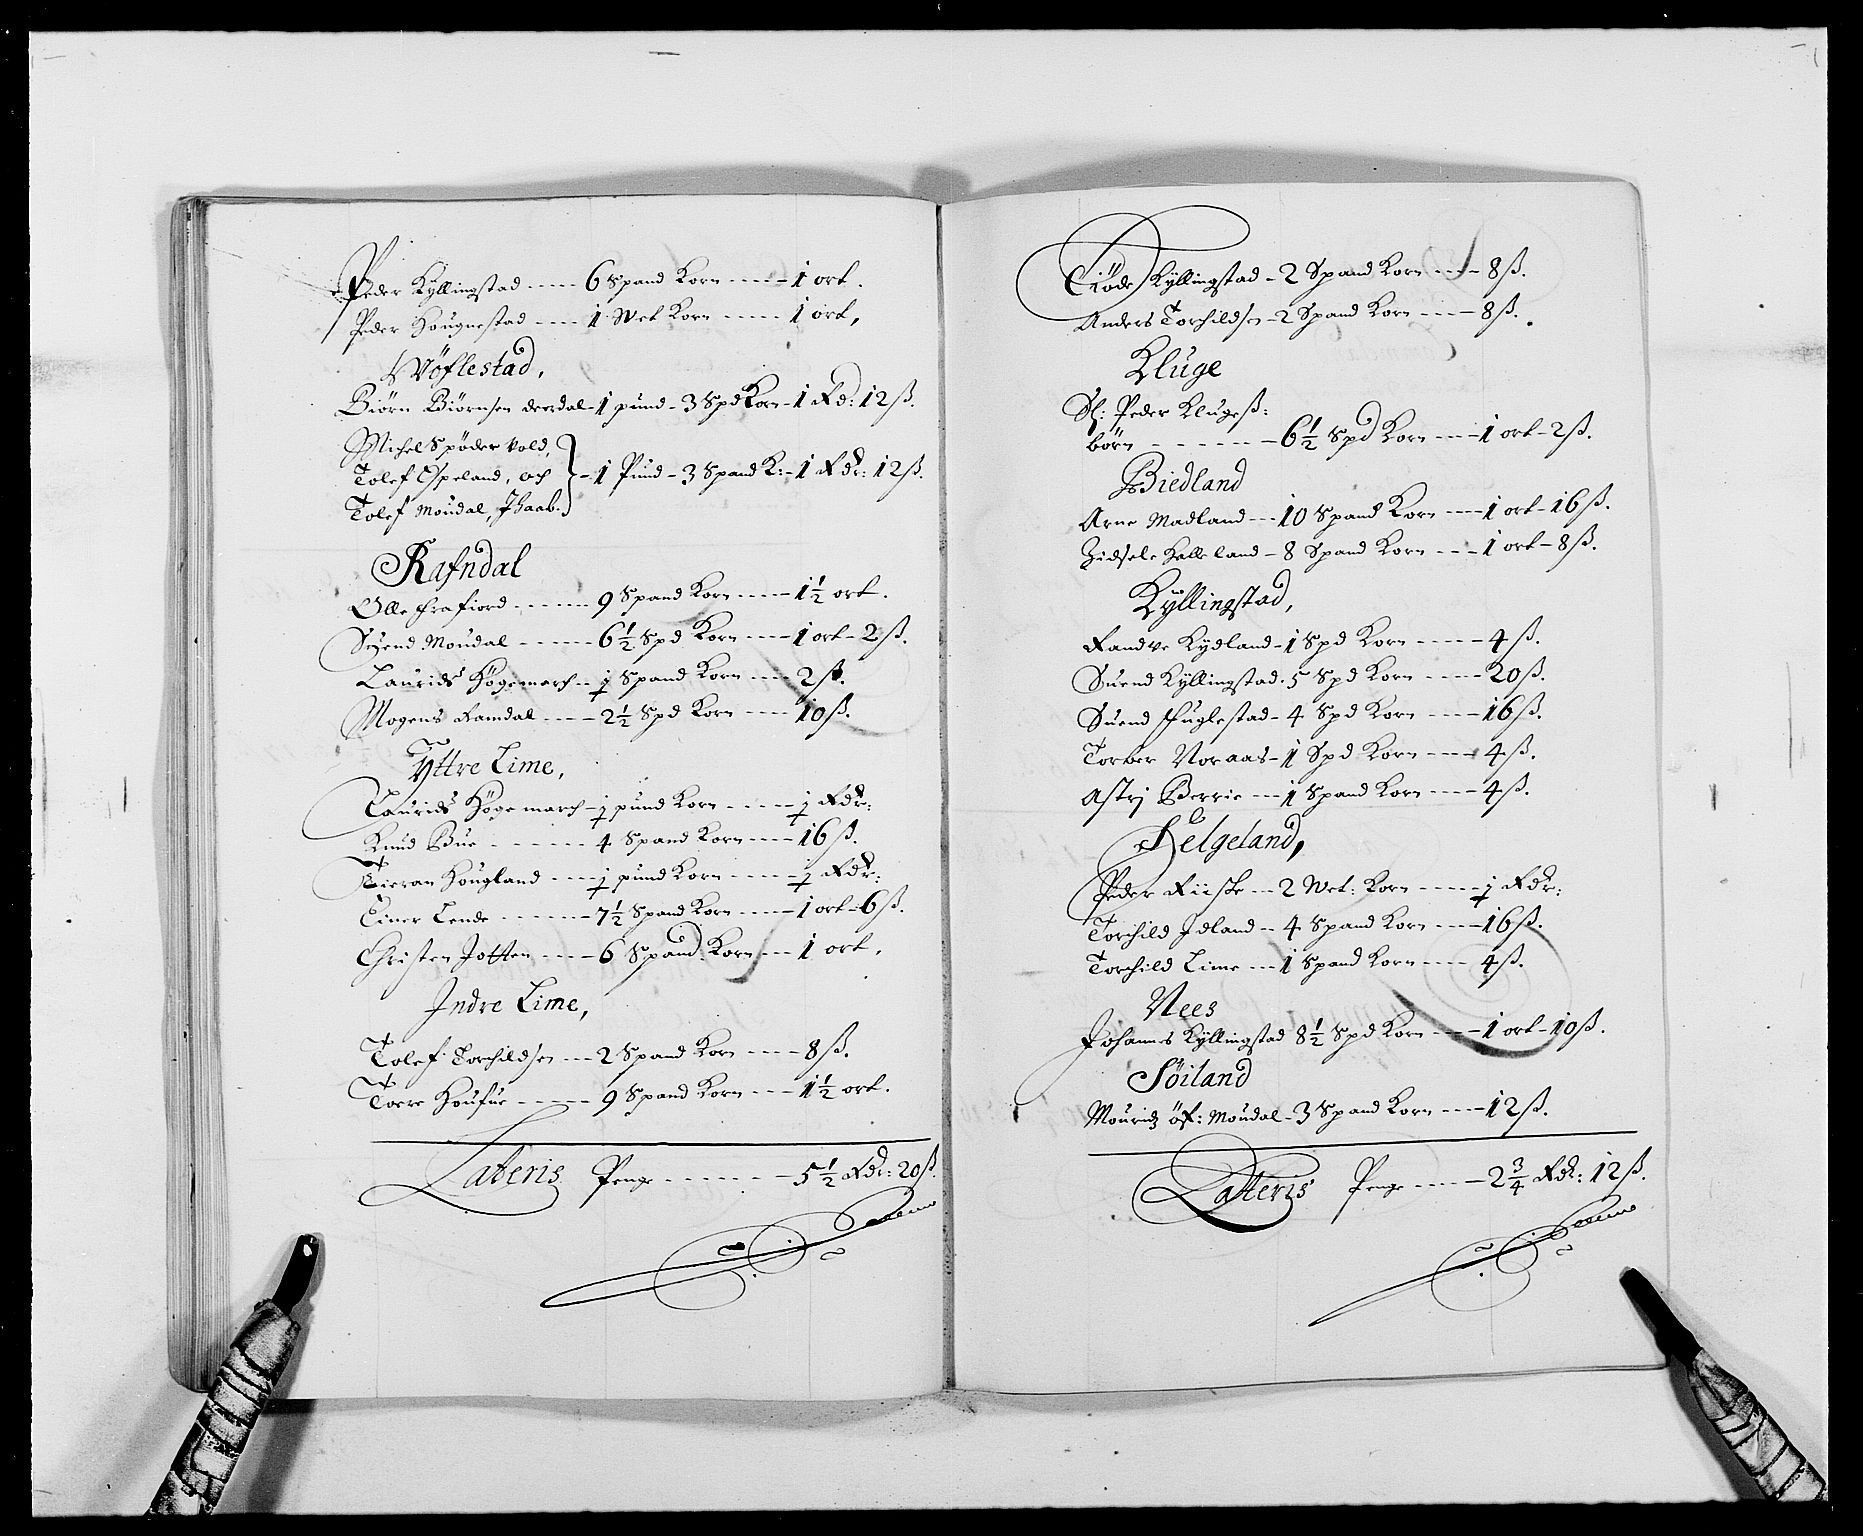 Peder Kyllingstad ---- 6 Spand Korn ---- 1 ort.
Peder Hougnestad ---- 1 Wet Korn ---- 1 ort,
Wöflestad,
Biörn Biörnsen dredal - 1 pund - 3 Spd Korn - 1 Rd: 12 ß.
Michel Spöder vold,
Tolef Espeland, och } - 1 Pund - 3 Spand K: - 1 Rdr: 12 ß.
Tolef Moudal, Ibaab.
Rafndal
Olle Frafiord ---- 9 Spand Korn ---- 1½ ort.
Svend Moudal ---- 6½ Spd Korn ---- 1 ort - 2 ß.
Laurids Högemarch -- ½ Spand Korn ---- 2 ß.
Mogens Ramdal ---- 2½ Spd Korn ---- 10 ß.
Yttre Lime,
Laurids Högemarch - ½ pund Korn ---- ½ Rdr:
Knud Bue ---- 4 Spand Korn ---- 16 ß.
Tieran Hougland ---- ½ pund Korn ---- ½ Rdr:
Einer Lende ---- 7½ Spand Korn ---- 1 ort - 6 ß.
Christen Jotten ---- 6 Spand Korn --- 1 ort,
Indre Lime,
Tolef Torchildsen --- 2 Spand Korn ---- 8 ß.
Torre Houfue ---- 9 Spand Korn ---- 1½ ort.
Lateris Penge ------ 5½ Rdr: 20 ß
Tiöde Kyllingstad - 2 Spand Korn ---- 8 ß.
Anders Torchildsen - 2 Spand Korn ---- 8 ß.
Kluge
Sl: Peder Klugeß:
börn ------ 6½ Spd Korn --- 1 ort - 2 ß.
Biedland
Arne Madland --- 10 Spand Korn ---- 1 ort - 16 ß.
Zidsele Helleland - 8 Spand Korn --- 1 ort - 8 ß.
Kyllingstad,
Randve Kydland - 1 Spd Korn ---- 4 ß.
Suend Kyllingstad. 5 Spd Korn ---- 20 ß.
Suend Fuglestad - 4 Spd Korn ---- 16 ß.
Torber Noraas - 1 Spd Korn ---- 4 ß.
Astrj Berrie --- 1 Spand Korn ---- 4 ß.
Helgeland,
Peder Riiske --- 2 Wet: Korn ---- ½ Rdr:
Torchild Idland -- 4 Spand Korn ---- 16 ß.
Torchild Lime --- 1 Spand Korn ---- 4 ß.
Nees
Johannes Kyllingstad 8½ Spd Korn ---- 1 ort - 10 ß.
Söiland
Mouridz öf: Moudal - 3 Spand Korn ---- 12 ß.
Latteris Penge ---- 2¾ Rdr: 12 ß.